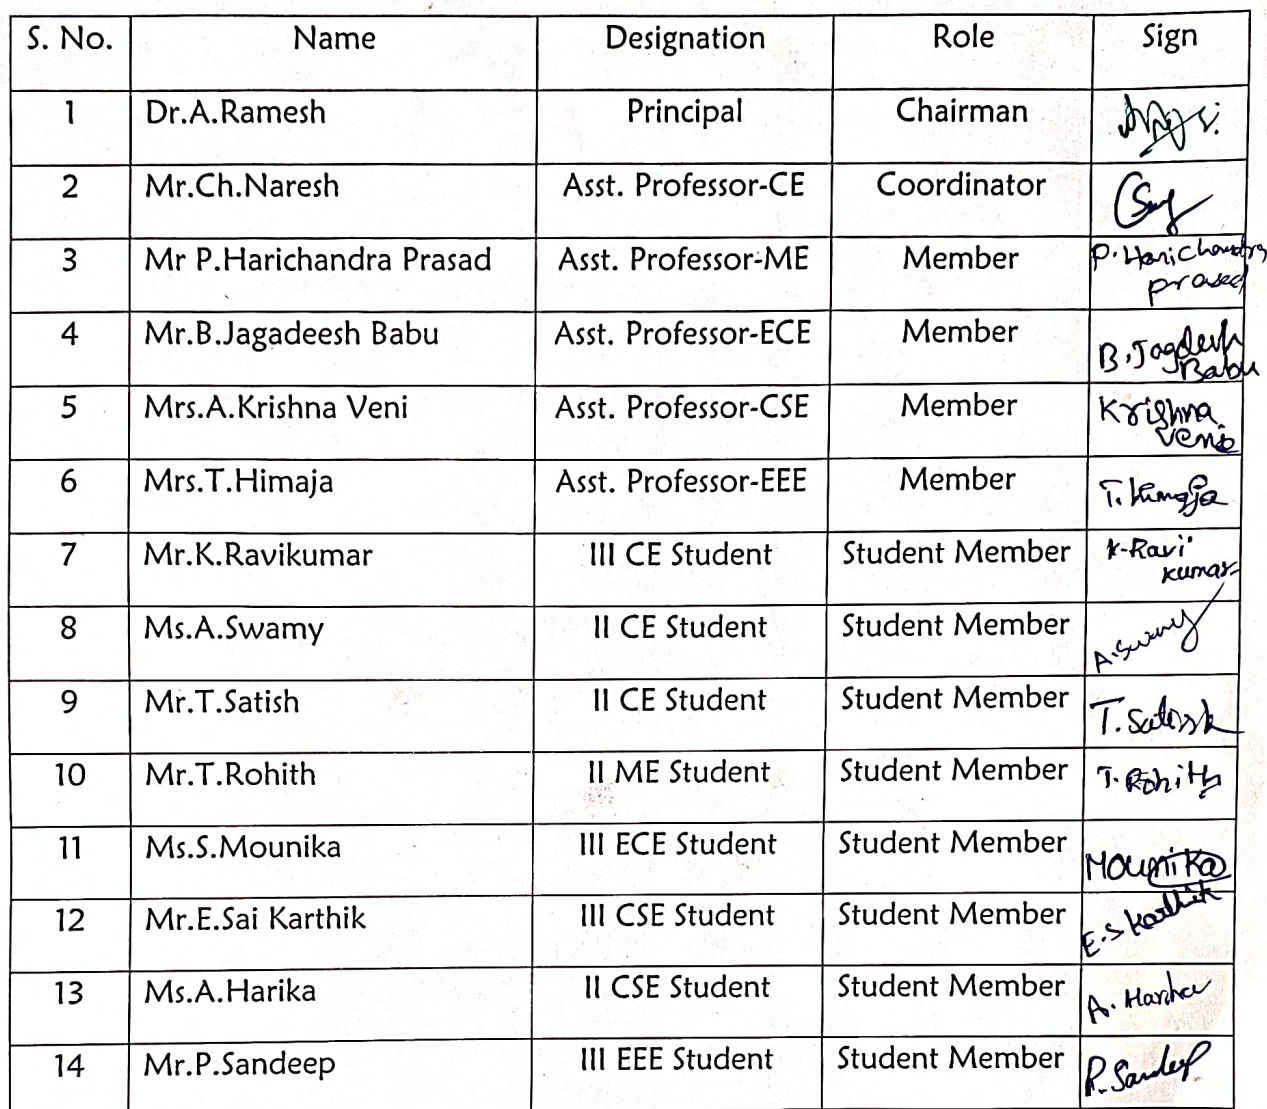 S. No. Name Designation Role Sign
1 Dr.A.Ramesh Principal Chairman
2 Mr.Ch.Naresh Asst. Professor-CE Coordinator
3 Mr P.Harichandra Prasad Asst. Professor-ME Member P. Harichandra
prasad
4 Mr.B.Jagadeesh Babu Asst. Professor-ECE Member B.Jagdesh
Babu
5 Mrs.A.Krishna Veni Asst. Professor-CSE Member Krishna
veni
6 Mrs.T.Himaja Asst. Professor-EEE Member T. Himaja
7 Mr.K.Ravikumar III CE Student Student Member K-Ravi
kumar
8 Ms.A.Swamy II CE Student Student Member A.Swamy
9 Mr.T.Satish II CE Student Student Member T. Satish
10 Mr.T.Rohith II ME Student Student Member T. Rohith
11 Ms.S.Mounika III ECE Student Student Member Mounika
12 Mr.E.Sai Karthik III CSE Student Student Member E.S Karthik
13 Ms.A.Harika II CSE Student Student Member A. Harika
14 Mr.P.Sandeep III EEE Student Student Member P. Sandeep